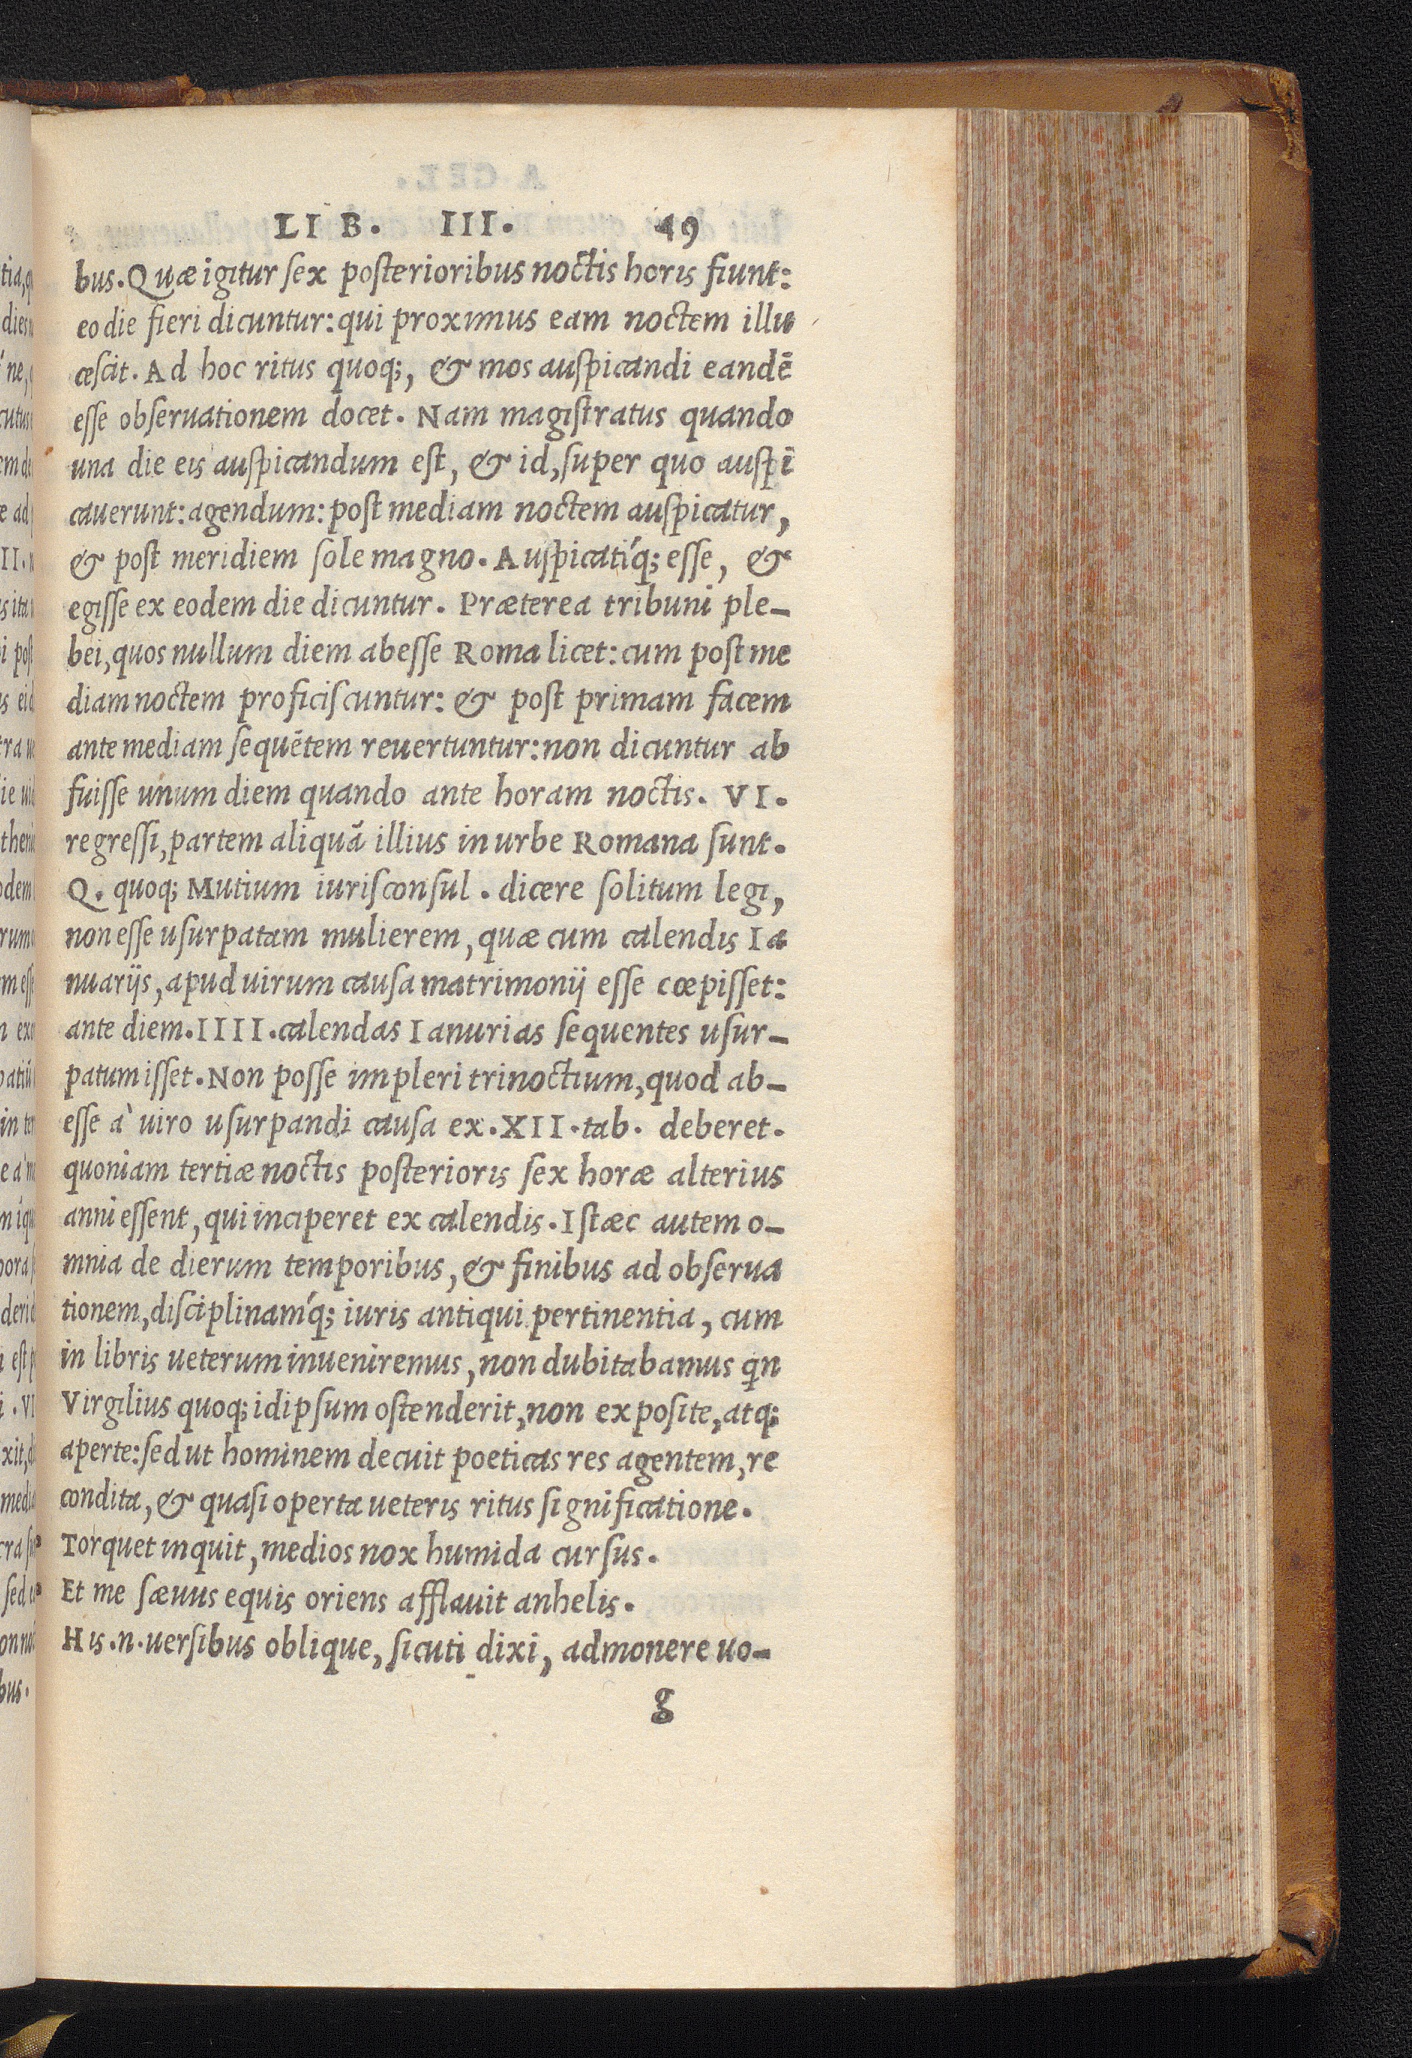 LIB. III. 49
bus. Quæ igitur sex posterioribus noctis horis fiunt:
eo die fieri dicuntur: qui proximus eam noctem illu
cescit. Ad hoc ritus quoq;, & mos auspicandi eandē
esse obseruationem docet. Nam magistratus quando
una die eis auspicandum est, & id, super quo auspi
cauerunt: agendum: post mediam noctem auspicatur,
& post meridiem sole magno. Auspicatíq; esse, &
egisse ex eodem die dicuntur. Præterea tribuni ple-
bei, quos nullum diem abesse Roma licet: cum post me
diam noctem proficiscuntur: & post primam facem
ante mediam sequētem reuertuntur: non dicuntur ab
fuisse unum diem quando ante horam noctis. VI.
regressi, partem aliquā illius in urbe Romana sunt.
Q. quoq; Mutium iurisconsul. dicere solitum legi,
non esse usurpatam mulierem, quæ cum calendis Ia
nuarijs, apud uirum causa matrimonij esse cœpisset:
ante diem. IIII. calendas Ianurias sequentes usur-
patum isset. Non posse impleri trinoctium, quod ab-
esse à uiro usurpandi causa ex. XII. tab. deberet.
quoniam tertiæ noctis posterioris sex horæ alterius
anni essent, qui inciperet ex calendis. Istæc autem o-
mnia de dierum temporibus, & finibus ad obserua
tionem, disciplinamq́; iuris antiqui pertinentia, cum
in libris ueterum inueniremus, non dubitabamus qn
Virgilius quoq; idipsum ostenderit, non exposite, atq;
aperte: sed ut hominem decuit poeticas res agentem, re
condita, & quasi operta ueteris ritus significatione.
Torquet inquit, medios nox humida cursus.
Et me sæuus equis oriens afflauit anhelis.
His. n. uersibus oblique, sicuti dixi, admonere uo-
g